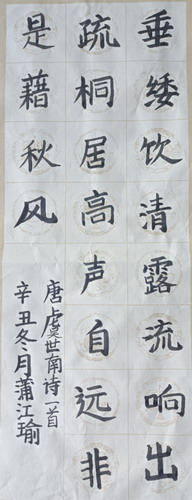 垂緌饮清露流响出
疏桐居高声自远非
是藉秋风
唐虞世南诗一首
辛丑冬月蒲江瑜